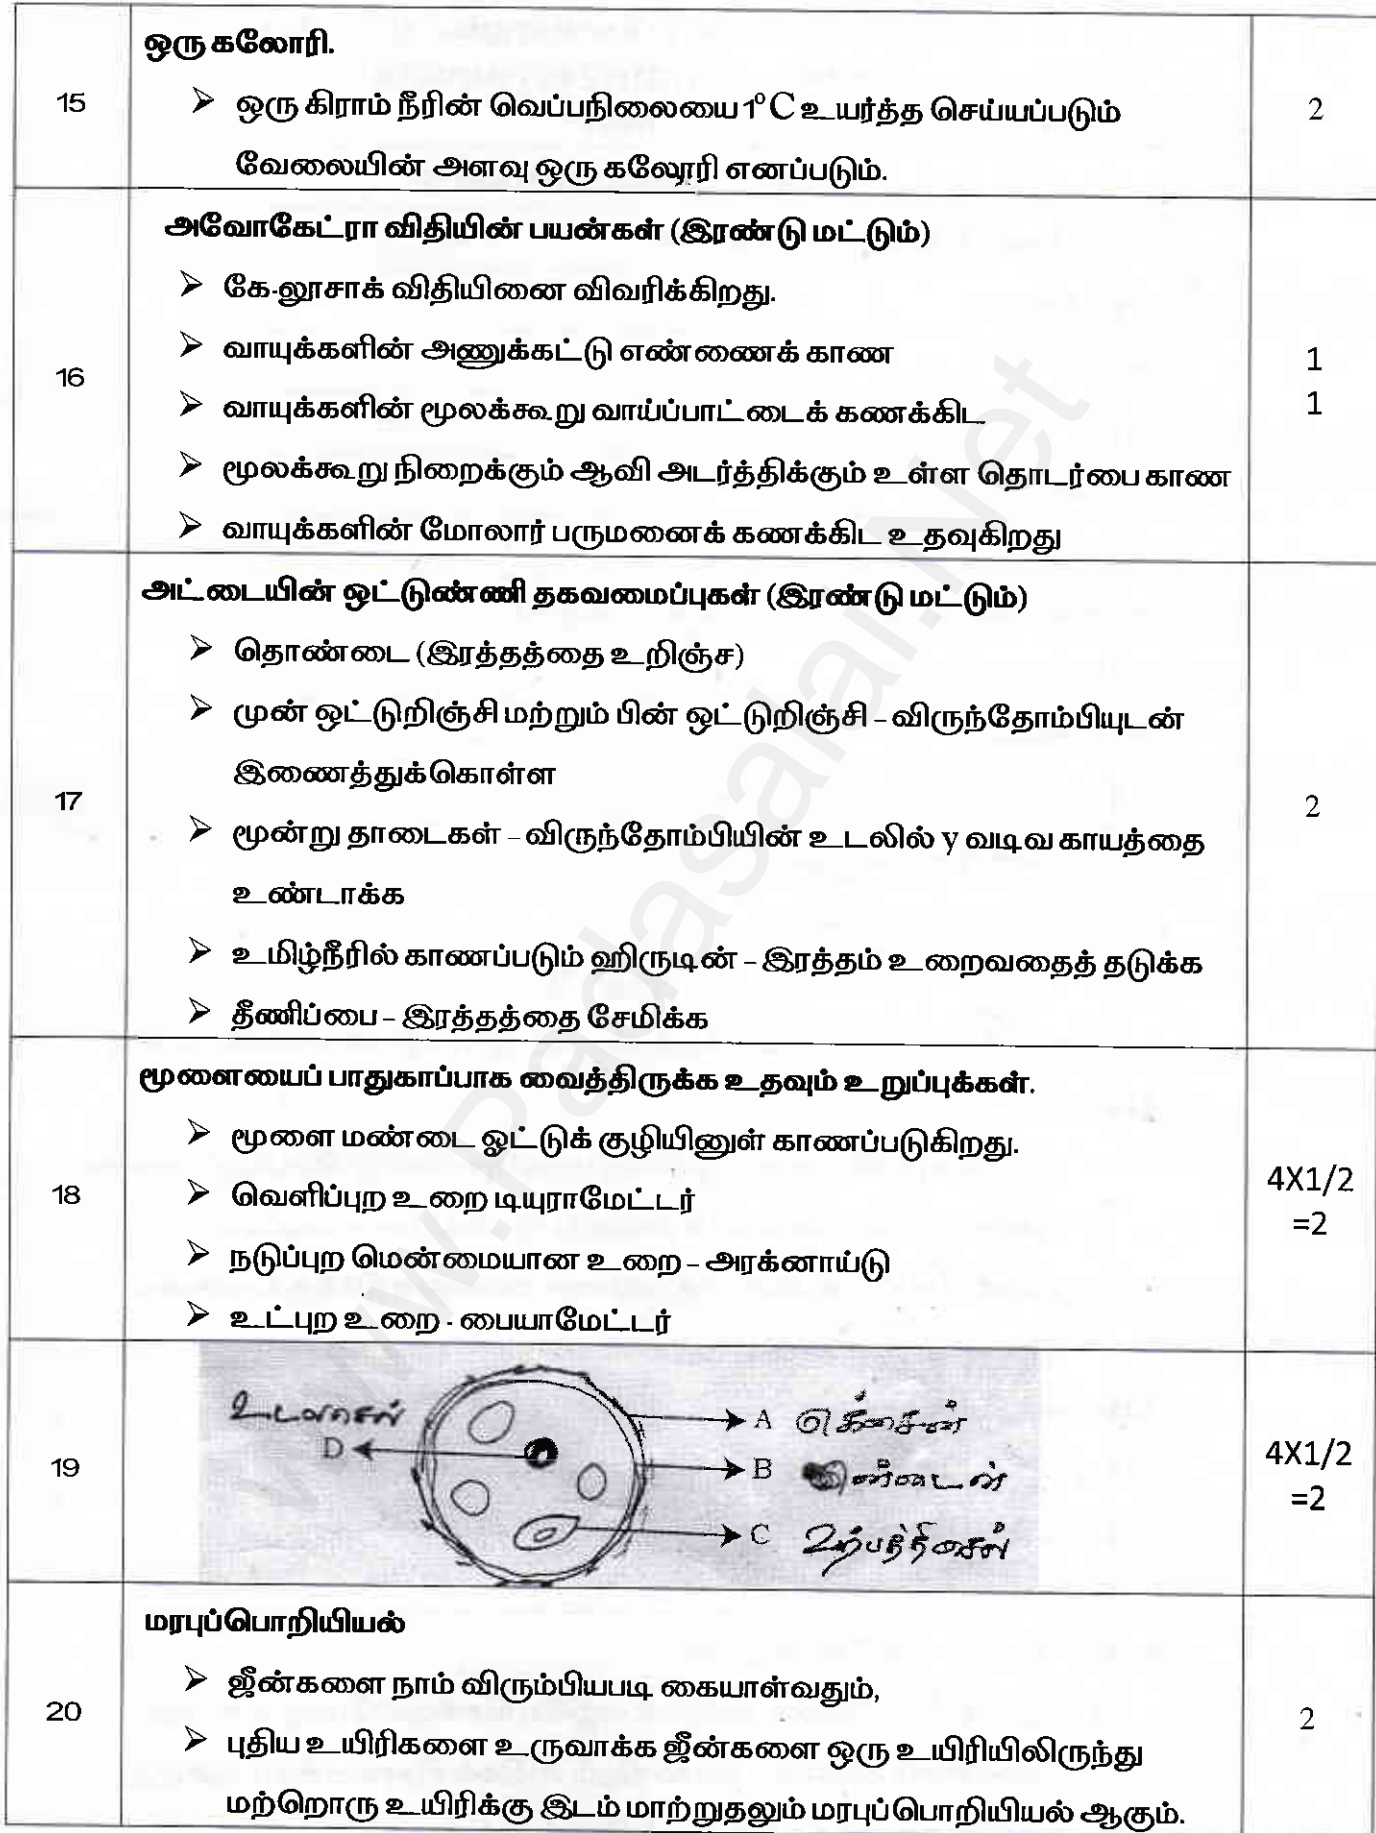 ஒரு கலோரி.
15
➢ ஒரு கிராம் நீரின் வெப்பநிலையை 1°C உயர்த்த செய்யப்படும்
2
வேலையின் அளவு ஒரு கலோரி எனப்படும்.
அவோகேட்ரா விதியின் பயன்கள் (இரண்டு மட்டும்)
➢ கே-லூசாக் விதியினை விவரிக்கிறது.
➢ வாயுக்களின் அணுக்கட்டு எண்ணைக் காண
16
1
➢ வாயுக்களின் மூலக்கூறு வாய்ப்பாட்டைக் கணக்கிட
1
➢ மூலக்கூறு நிறைக்கும் ஆவி அடர்த்திக்கும் உள்ள தொடர்பை காண
➢ வாயுக்களின் மோலார் பருமனைக் கணக்கிட உதவுகிறது
அட்டையின் ஒட்டுண்ணி தகவமைப்புகள் (இரண்டு மட்டும்)
➢ தொண்டை (இரத்தத்தை உறிஞ்ச)
➢ முன் ஒட்டுறிஞ்சி மற்றும் பின் ஒட்டுறிஞ்சி – விருந்தோம்பியுடன்
இணைத்துக்கொள்ள
17
2
➢ மூன்று தாடைகள் – விருந்தோம்பியின் உடலில் y வடிவ காயத்தை
உண்டாக்க
➢ உமிழ்நீரில் காணப்படும் ஹிருடின் – இரத்தம் உறைவதைத் தடுக்க
➢ தீனிப்பை – இரத்தத்தை சேமிக்க
மூளையைப் பாதுகாப்பாக வைத்திருக்க உதவும் உறுப்புக்கள்.
➢ மூளை மண்டை ஓட்டுக் குழியினுள் காணப்படுகிறது.
18
➢ வெளிப்புற உறை டியுராமேட்டர்
4X1/2
=2
➢ நடுப்புற மென்மையான உறை – அரக்னாய்டு
➢ உட்புற உறை - பையாமேட்டர்
A
D
19
B
4X1/2
=2
C
மரபுப்பொறியியல்
➢ ஜீன்களை நாம் விரும்பியபடி கையாள்வதும்,
20
2
➢ புதிய உயிரிகளை உருவாக்க ஜீன்களை ஒரு உயிரியிலிருந்து
மற்றொரு உயிரிக்கு இடம் மாற்றுதலும் மரபுப்பொறியியல் ஆகும்.
www.Padasalai.Net